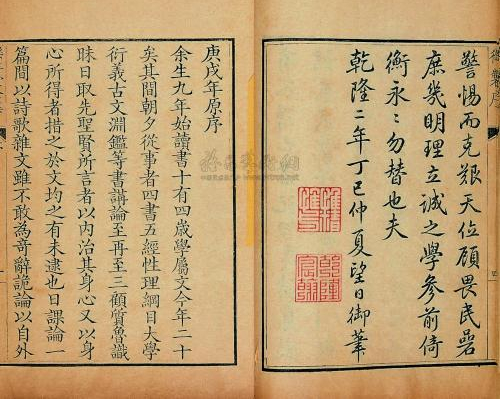 警惕而克艱天位顧畏民碞
庶幾明理立誠之學參前倚
衡永永勿替也夫
乾隆二年丁巳仲夏望日御筆
庚戌年原序
余生九年始讀書十有四歲學屬文今年二十
矣其間朝夕從事者四書五經性理綱目大學
衍義古文淵鑑等書講論至再至三顧質魯識
昧日取先聖賢所言者以內治其身心又以身
心所得者措之於文均之有未逮也日課論一
篇間以詩歌雜文雖不敢為奇辭詭論以自外